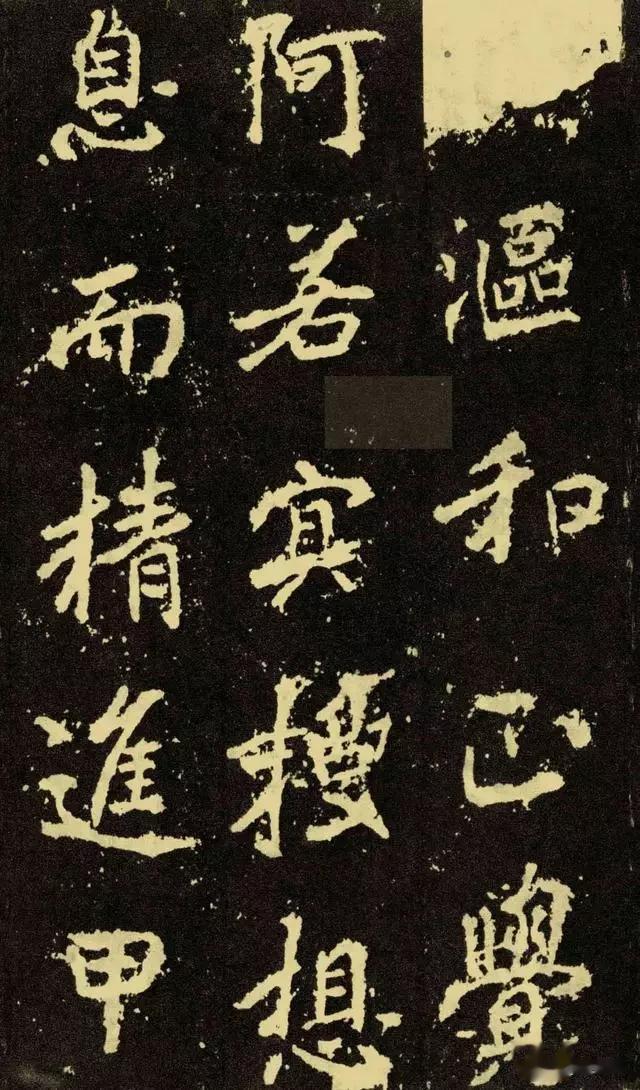 漚和正覺
阿若冥搜想
息而精進甲